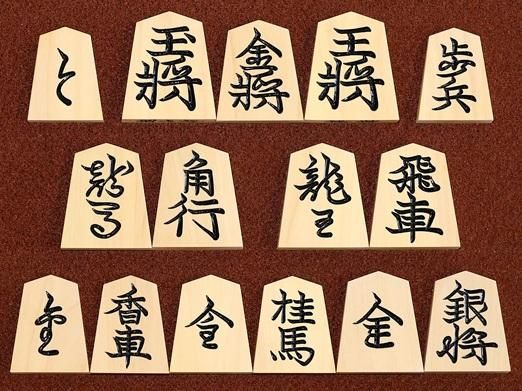 と 玉將 金將 王將 歩兵
龍馬 角行 龍王 飛車
金 香車 金 桂馬 金 銀将